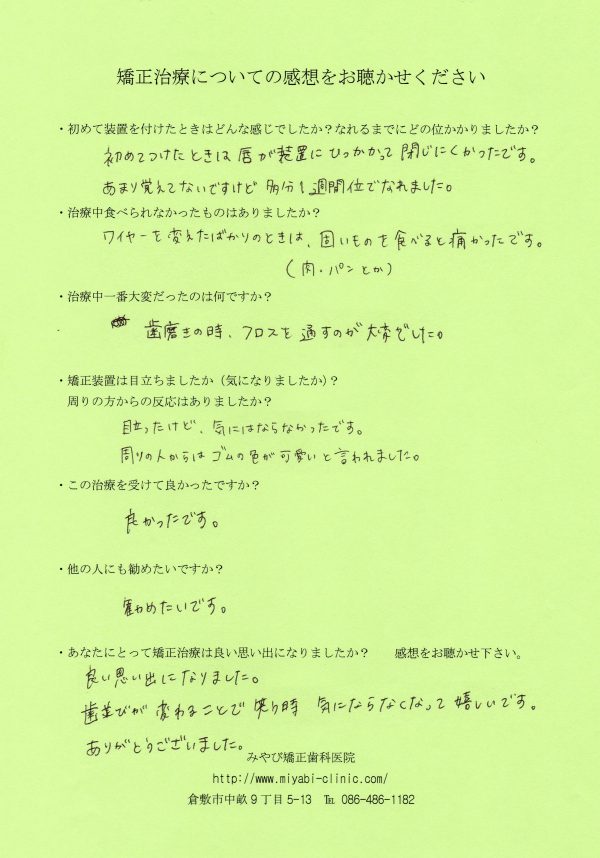 矯正治療についての感想をお聴かせください
・初めて装置を付けたときはどんな感じでしたか？なれるまでにどの位かかりましたか？
初めてつけたときは唇が装置にひっかかって閉じにくかったです。
あまり覚えてないですけど多分1週間位でなれました。
・治療中食べられなかったものはありましたか？
ワイヤーを変えたばかりのときは、固いものを食べると痛かったです。
（肉・パンとか）
・治療中一番大変だったのは何ですか？
歯磨きの時、フロスを通すのが大変でした。
・矯正装置は目立ちましたか（気になりましたか）？
周りの方からの反応はありましたか？
目立ったけど、気にはならなかったです。
周りの人からはゴムの色が可愛いと言われました。
・この治療を受けて良かったですか？
良かったです。
・他の人にも勧めたいですか？
勧めたいです。
・あなたにとって矯正治療は良い思い出になりましたか？　感想をお聴かせ下さい。
良い思い出になりました。
歯並びが変わることで笑う時気にならなくなって嬉しいです。
ありがとうございました。
みやび矯正歯科医院
http://www.miyabi-clinic.com/
倉敷市中畝9丁目5-13　℡ 086-486-1182